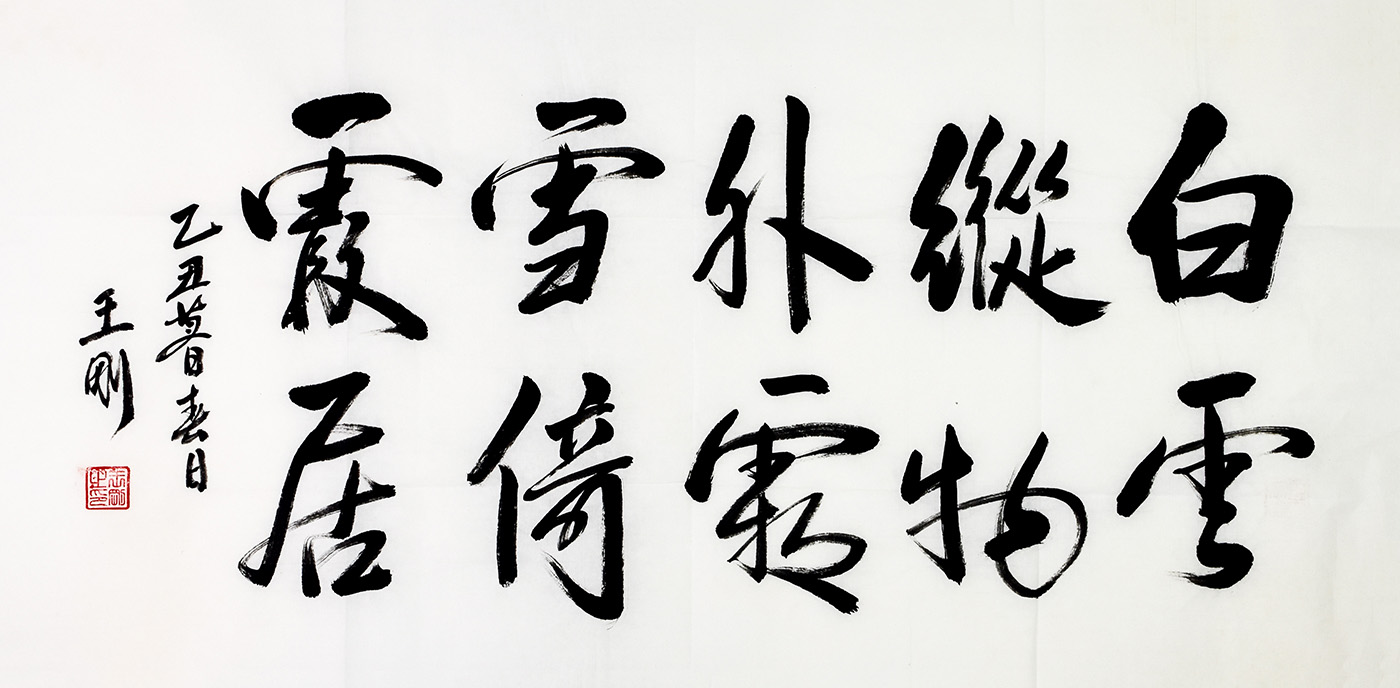 白雲
縱物
外霜
雪倚
霞居
乙丑暮春日
王剛